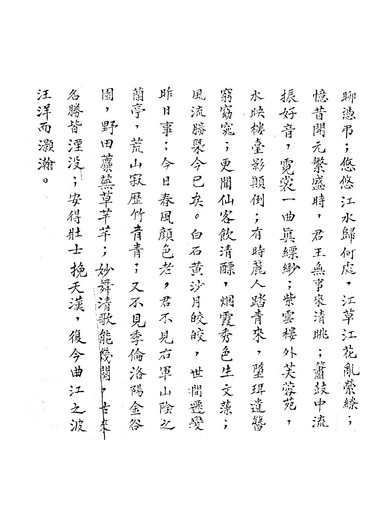 聊憑弔；悠悠江水歸何處，江草江花亂縈繚；
憶昔開元繁盛時，君王無事來清眺；簫鼓中流
振好音，霓裳一曲與縹緲；紫雲樓外芙蓉苑，
水映樓臺影顛倒；有時麗人踏青來，墮珥遺簪
窮窈窕；更聞仙客飲清醥，烟霞秀色生文藻；
風流勝舉今已矣。白石黃沙月皎皎，世間遷變
昨日事；今日春風顏色老，君不見右軍山陰之
蘭亭，荒山寂歷竹青青；又不見季倫洛陽金谷
園，野田蘼蕪草芊芊；妙舞清歌能幾閱，古來
名勝皆湮沒；安得壯士挽天漢，復令曲江之波
汪洋而灝瀚。